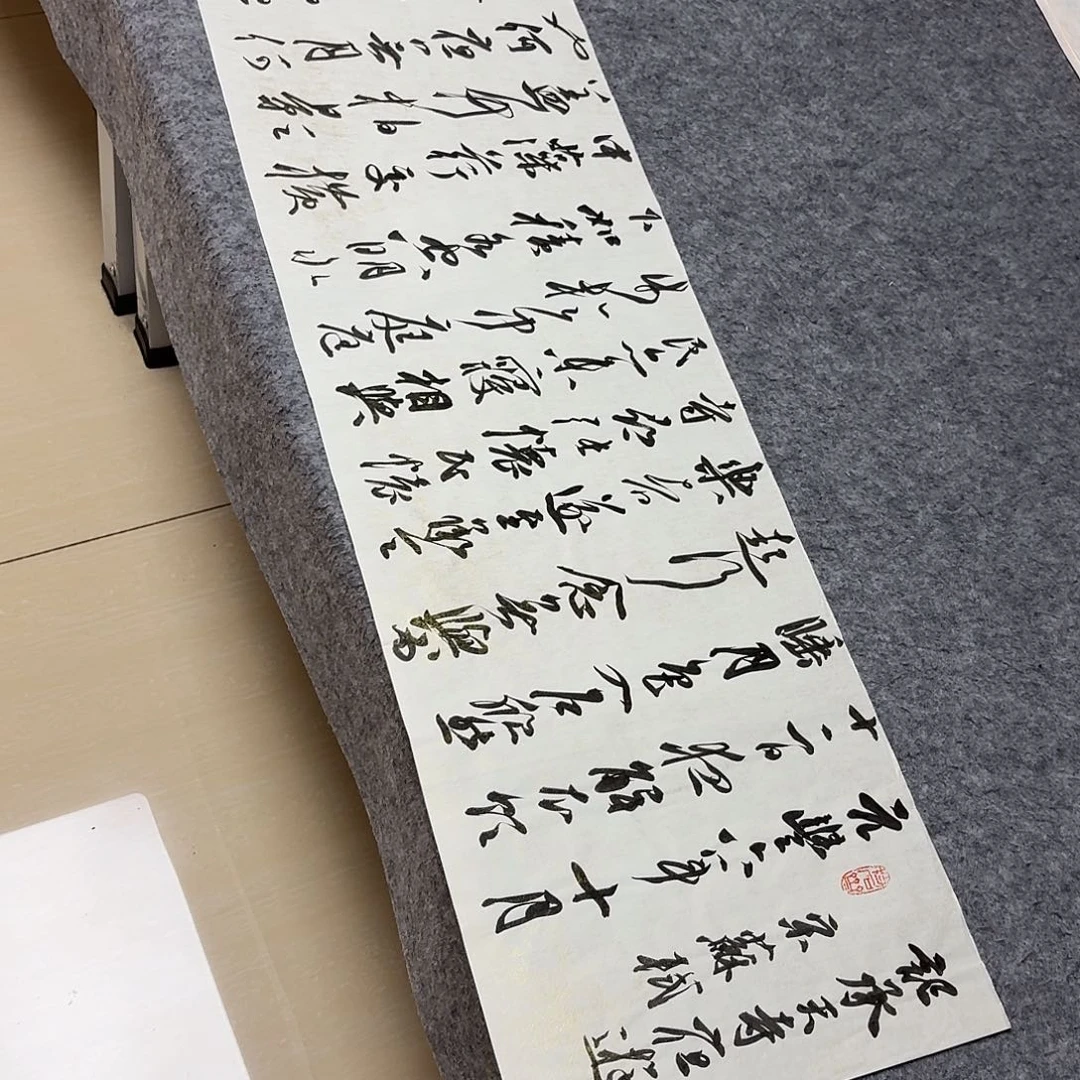 記承天寺夜遊
宋蘇軾
元豐六年十月
十二日夜解衣欲
睡月色入户欣然
起行念無與為
樂者遂至承天
寺尋張懷民懷
民亦未寢相與
步於中庭庭
下如積水空明水
中藻荇交橫
蓋竹柏影
也何夜無月何